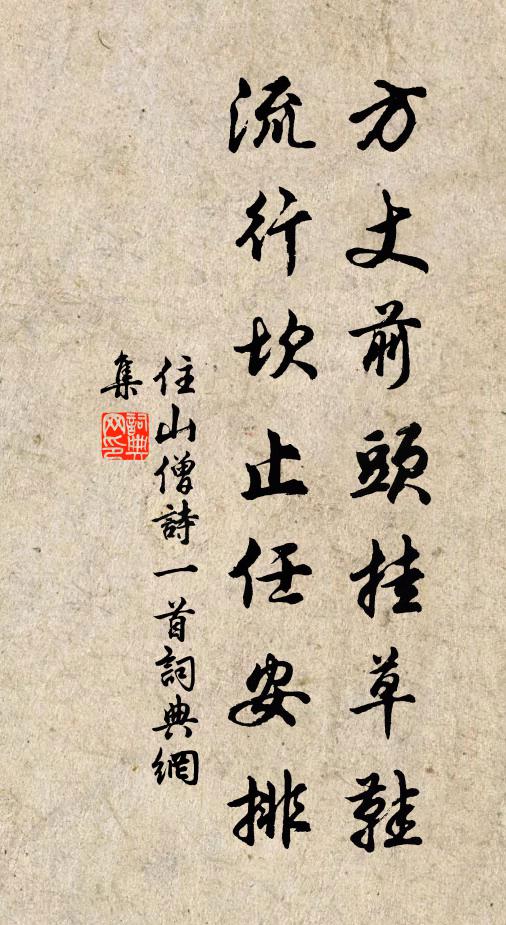 方丈前頭挂草鞋
流行坎止任安排
住山僧詩一首詞典網
集
詞典
网印